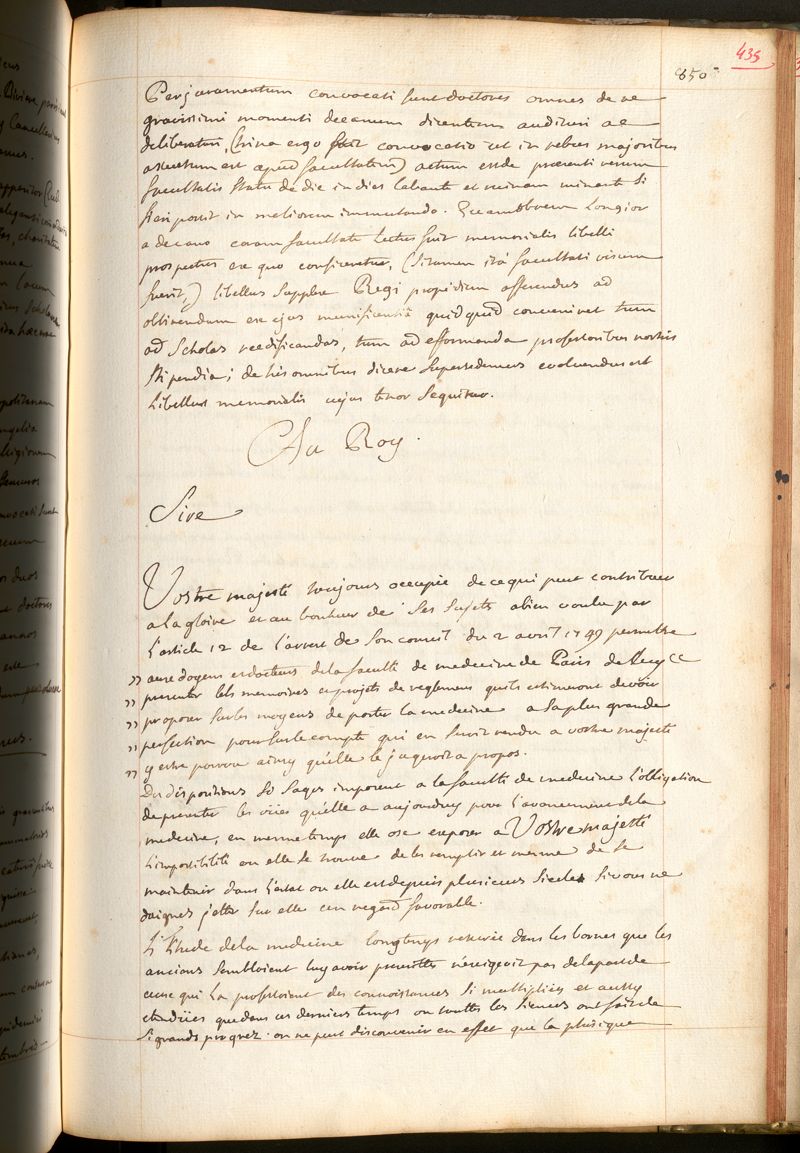 435
850
Per juramentum convocati sunt doctores omnes de re
gravissimi momenti decanum dicentem audituri ac
deliberaturi, (trina ergo fuit convocatio ut in rebus majoribus
assuetum est apud facultatem) actum est de præsenti rerum
facultatis statu de die in dies labante et ruinam minante si
fieri possit in meliorem immutando. Quamobrem longior
a decano coram facultate lectus fuit memorialis libelli
prospectus ex quo conficeretur, (si tamen ità facultati visum
fuerit,) libellus supplex Regi propediem offerendus ad
obtinendum ex ejus munificentiâ quidquid conveniret tum
ad Scholas reedificandas, tum ad efformanda professoribus nostris
stipendia; de his omnibus dicere supersedemus evolvendus est
Libellus memorialis cujus tenor sequitur.
Au Roy.
Sire
Vostre majesté toujours occupée de ce qui peut contribuer
a la gloire et au bonheur de ses sujets a bien voulu par
l'article 12 de l'arrest de son conseil du 2 avril 1749 permettre
» aux doyens et docteurs de la faculté de medecine de Paris de luy
» presenter les memoires et projets de reglemens quils estimeront devoir
» proposer sur les moyens de porter la medecine a sa plus grande
» perfection pour sur le compte qui en seroit rendu a vostre majesté
» y estre pourvu ainsy qu'elle le jugeroit a propos.
Des dispositions si sages imposent a la faculté de medecine l'obligation
de presenter les vües qu'elle a aujourdhuy pour l'avancement de la
medecine, en meme temps elle ose exposer a Vostre majesté
l'impossibilité ou elle se trouve de les remplir et meme de se
maintenir dans l'estat ou elle est depuis plusieurs siecles si vous ne
daignez jetter sur elle un regard favorable.
L'Etude de la medecine longtemps reserrée dans les bornes que les
anciens sembloient luy avoir prescrittes n'exigeoit pas de la part de
ceux qui la professoient des connoissances si multipliées et aussy
etendües que dans ces derniers temps ou toutes les sciences ont fait de
si grands progrez. on ne peut disconvenir en effet que la phisique